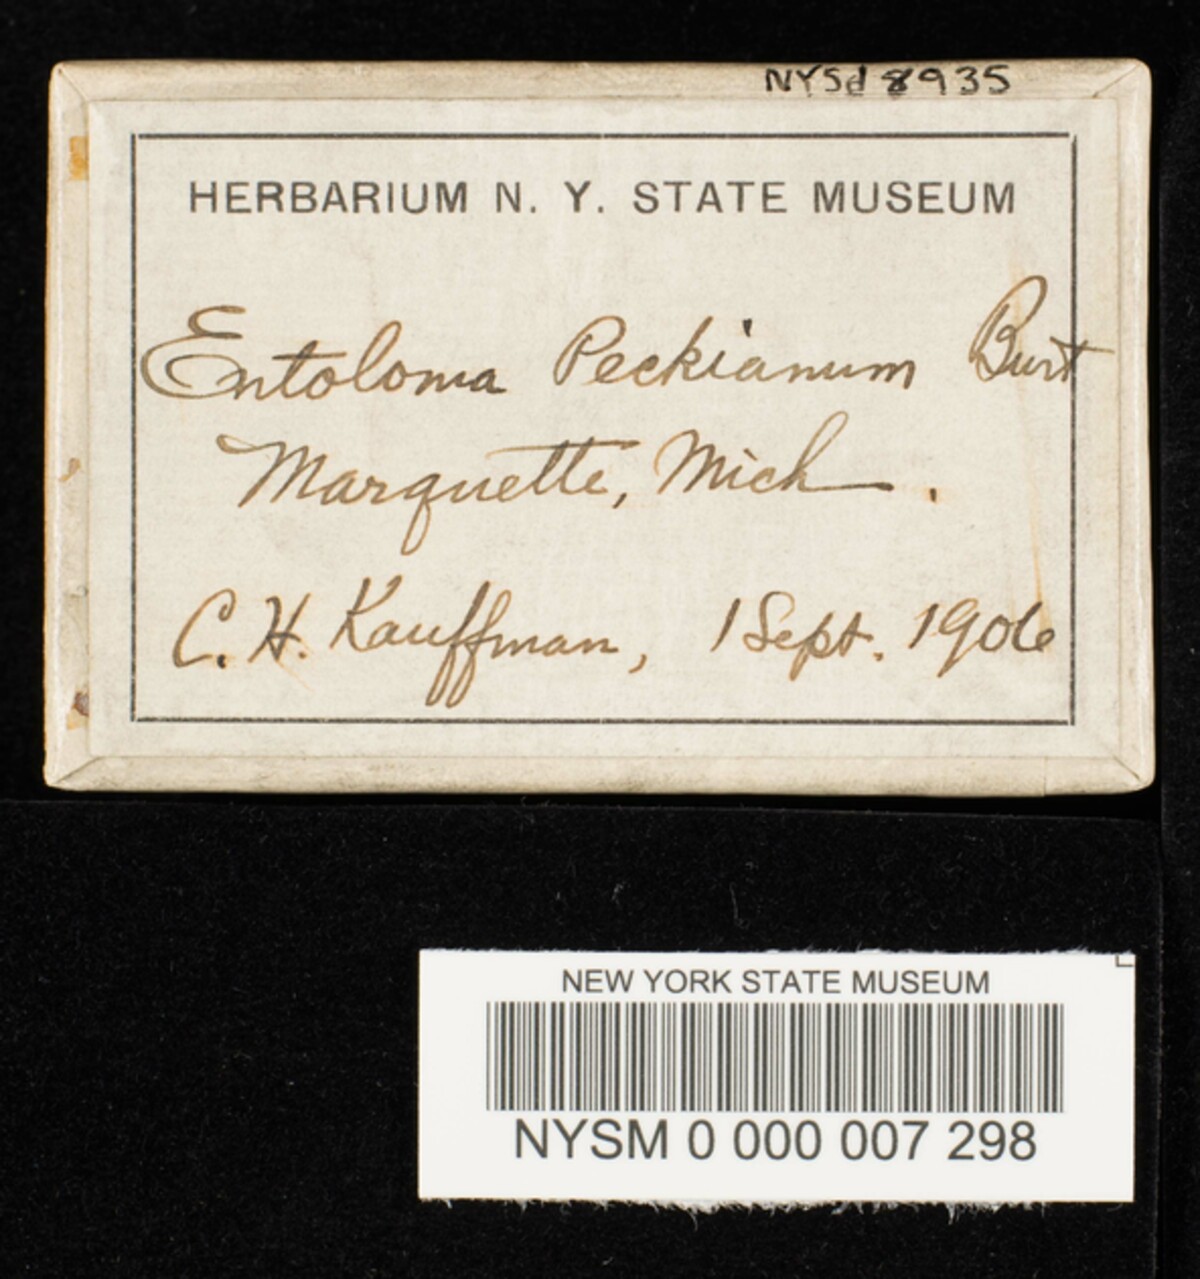 NYSd 8935
HERBARIUM N. Y. STATE MUSEUM
Entoloma Peckianum Burt
Marquette, Mich.
C. H. Kauffman, 1 Sept. 1906
NEW YORK STATE MUSEUM
NYSM 0 000 007 298